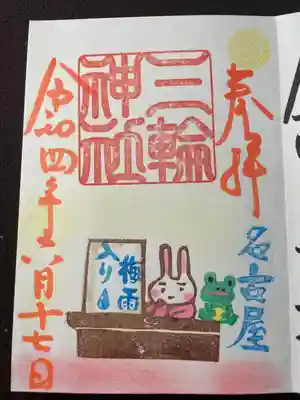 奉拝
名古屋
三輪
神社
梅雨
入り
令和四年六月十七日